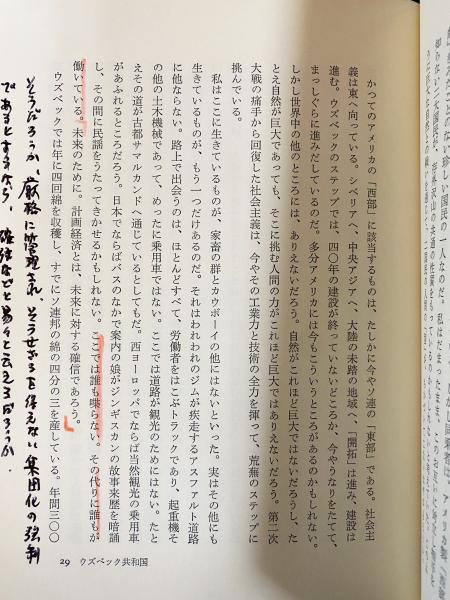 かつてのアメリカの「西部」に該当するものは、たしかに今やソ連の「東部」である。社会主
義は東へ向っている。シベリアへ、中央アジアへ、大陸の未踏の地域へ、「開拓」は進み、建設は
進む。ウズベックのステップでは、四〇年の建設が終っていないどころか、今やうなりをたてて、
まっしぐらに進みだしているのだ。多分アメリカには今もこういうところがあるのかもしれない。
しかし世界中の他のところには、ありえないだろう。自然がこれほど巨大ではないだろうし、た
とえ自然が巨大であっても、そこに挑む人間の力がこれほど巨大ではありえないだろう。第二次
大戦の痛手から回復した社会主義は、今やその工業力と技術の全力を揮って、荒蕪のステップに
挑んでいる。
私はここに生きているものが、家畜の群とカウボーイの他にはないといった。実はその他にも
生きているものが、もう一つだけあるのだ。それはわれわれのジムが疾走するアスファルト道路
に他ならない。路上で出会うのは、ほとんどすべて、労働者をはこぶトラックであり、起重機そ
の他の土木機械であって、めったに乗用車ではない。ここでは道路が観光のためにはない。たと
えその道が古都サマルカンドへ通じているとしてもだ。西ヨーロッパでならば当然観光の乗用車
があふれるところだろう。日本でならばバスのなかで案内の娘がジンギスカンの故事来歴を暗誦
し、その間に民謡をうたってきかせるかもしれない。ここでは誰も喋らない。その代りに誰もが
働いている。未来のために。計画経済とは、未来に対する確信であろう。
ウズベックでは年に四回綿を収穫し、すでにソ連邦の綿の四分の三を産している。年間三〇〇
29 ウズベック共和国
そうだろうか、厳格に管理され、そうせざるを得ない集団化の強制
であるとするなら 確信などと易々と云えるだろうか.